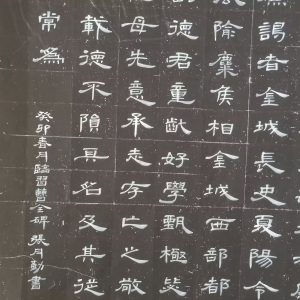 為謁者金城長史夏陽令
隃麋侯相金城西部都
德君童齔好學甄極毖
母先意承志存亡之敬
載德不隕其名及其從
常為
癸卯春月臨習曹全碑 張月勤書